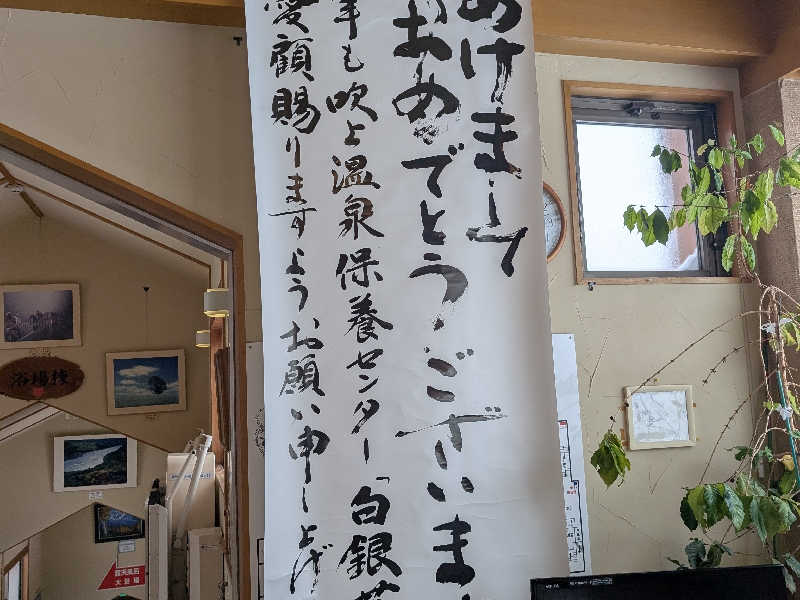 あけまして
おめでとうございま
年も吹上温泉保養センター「白銀荘
愛顧賜りますようお願い申し上げ
浴場棟
露天風呂
大浴場